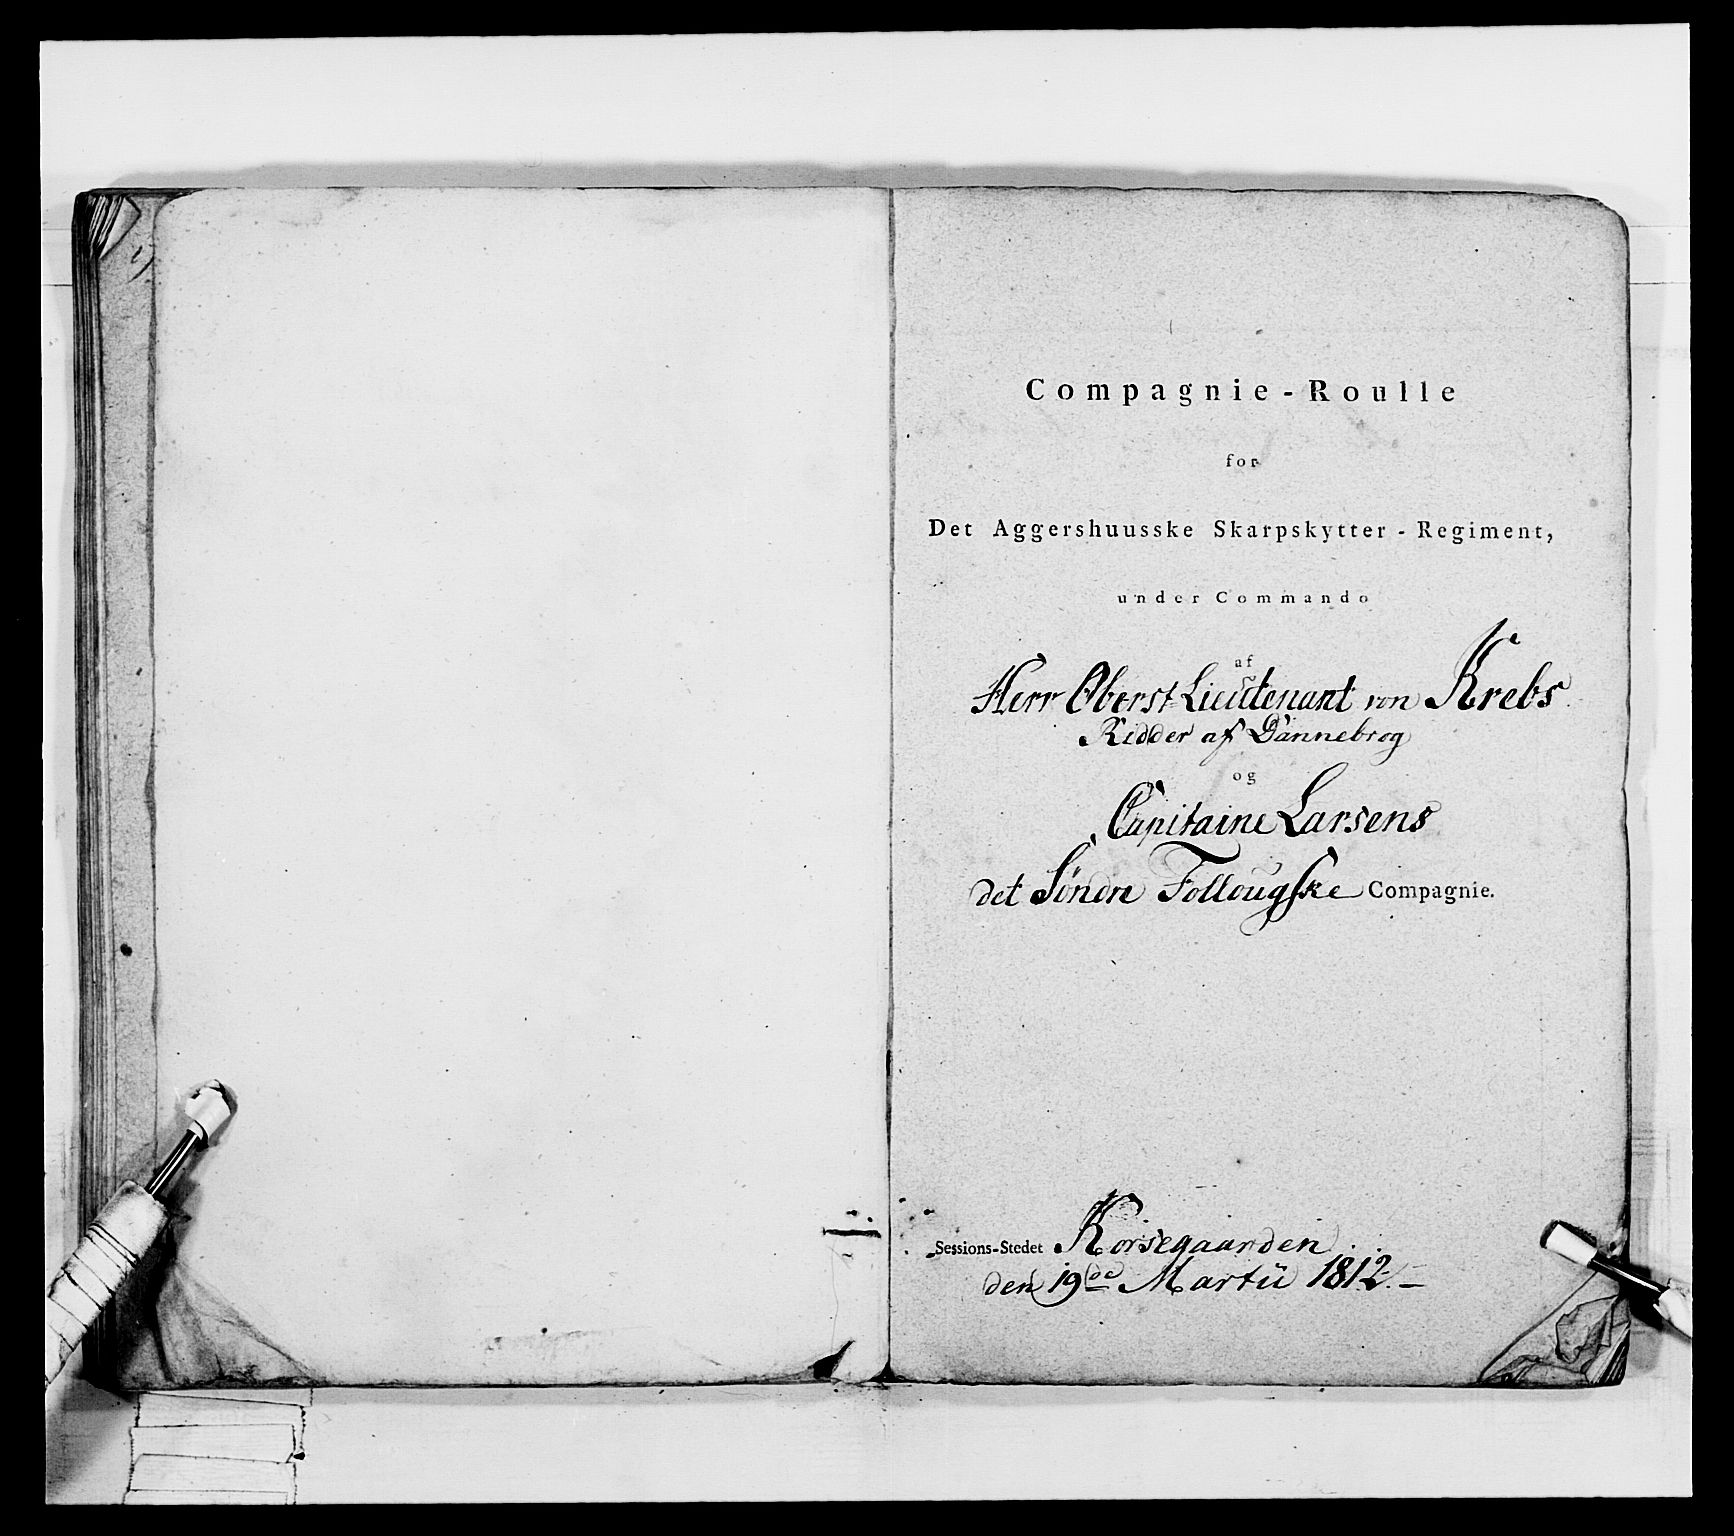 Compagnie-Roulle
for
Det Aggershuusske Skarpskytter-Regiment,
under Commando
af
Herr Oberst-Lieutenant von Krebs
Ridder af Dannebrog
og
Capitaine Larsens
det Söndre Follougske Compagnie.
Sessions-Stedet Korsegaarden
den 19de Martii 1812.–